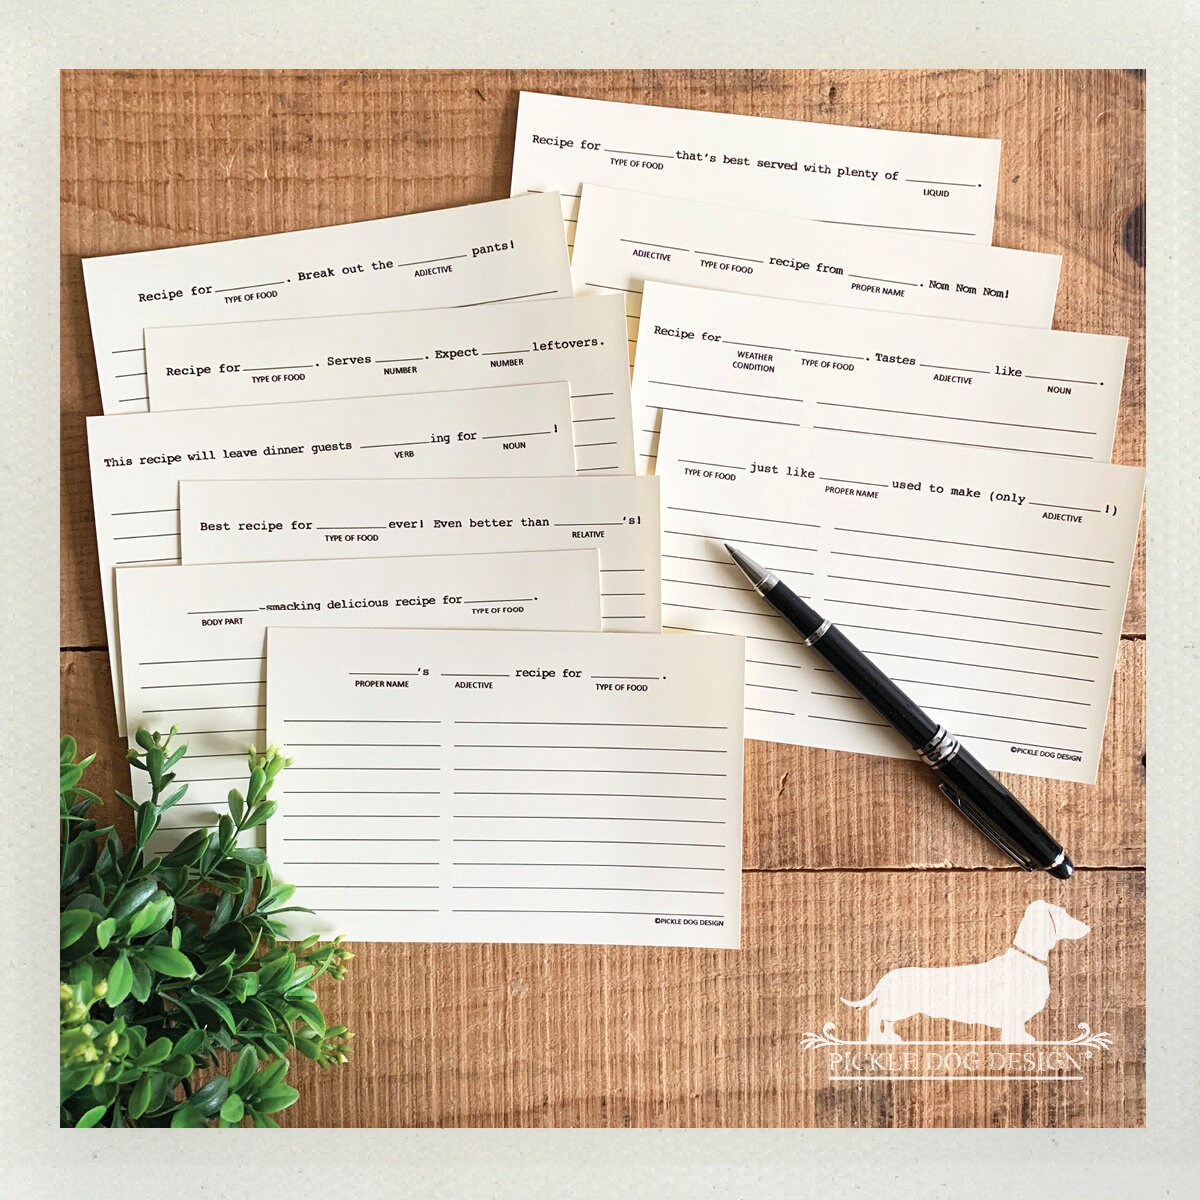 Recipe for ________ that's best served with plenty of ________.
TYPE OF FOOD LIQUID
________ ________ recipe from ________. Nom Nom Nom!
ADJECTIVE TYPE OF FOOD PROPER NAME
Recipe for ________ ________. Tastes ________ like ________.
WEATHER CONDITION TYPE OF FOOD ADJECTIVE NOUN
________ just like ________ used to make (only ________!)
TYPE OF FOOD PROPER NAME ADJECTIVE
©PICKLE DOG DESIGN
Recipe for ________. Break out the ________ pants!
TYPE OF FOOD ADJECTIVE
Recipe for ________. Serves ______. Expect ______ leftovers.
TYPE OF FOOD NUMBER NUMBER
This recipe will leave dinner guests ________ing for ________!
VERB NOUN
Best recipe for ________ ever! Even better than ________'s!
TYPE OF FOOD RELATIVE
________-smacking delicious recipe for ________.
BODY PART TYPE OF FOOD
________'s ________ recipe for ________.
PROPER NAME ADJECTIVE TYPE OF FOOD
©PICKLE DOG DESIGN
PICKLE DOG DESIGN®